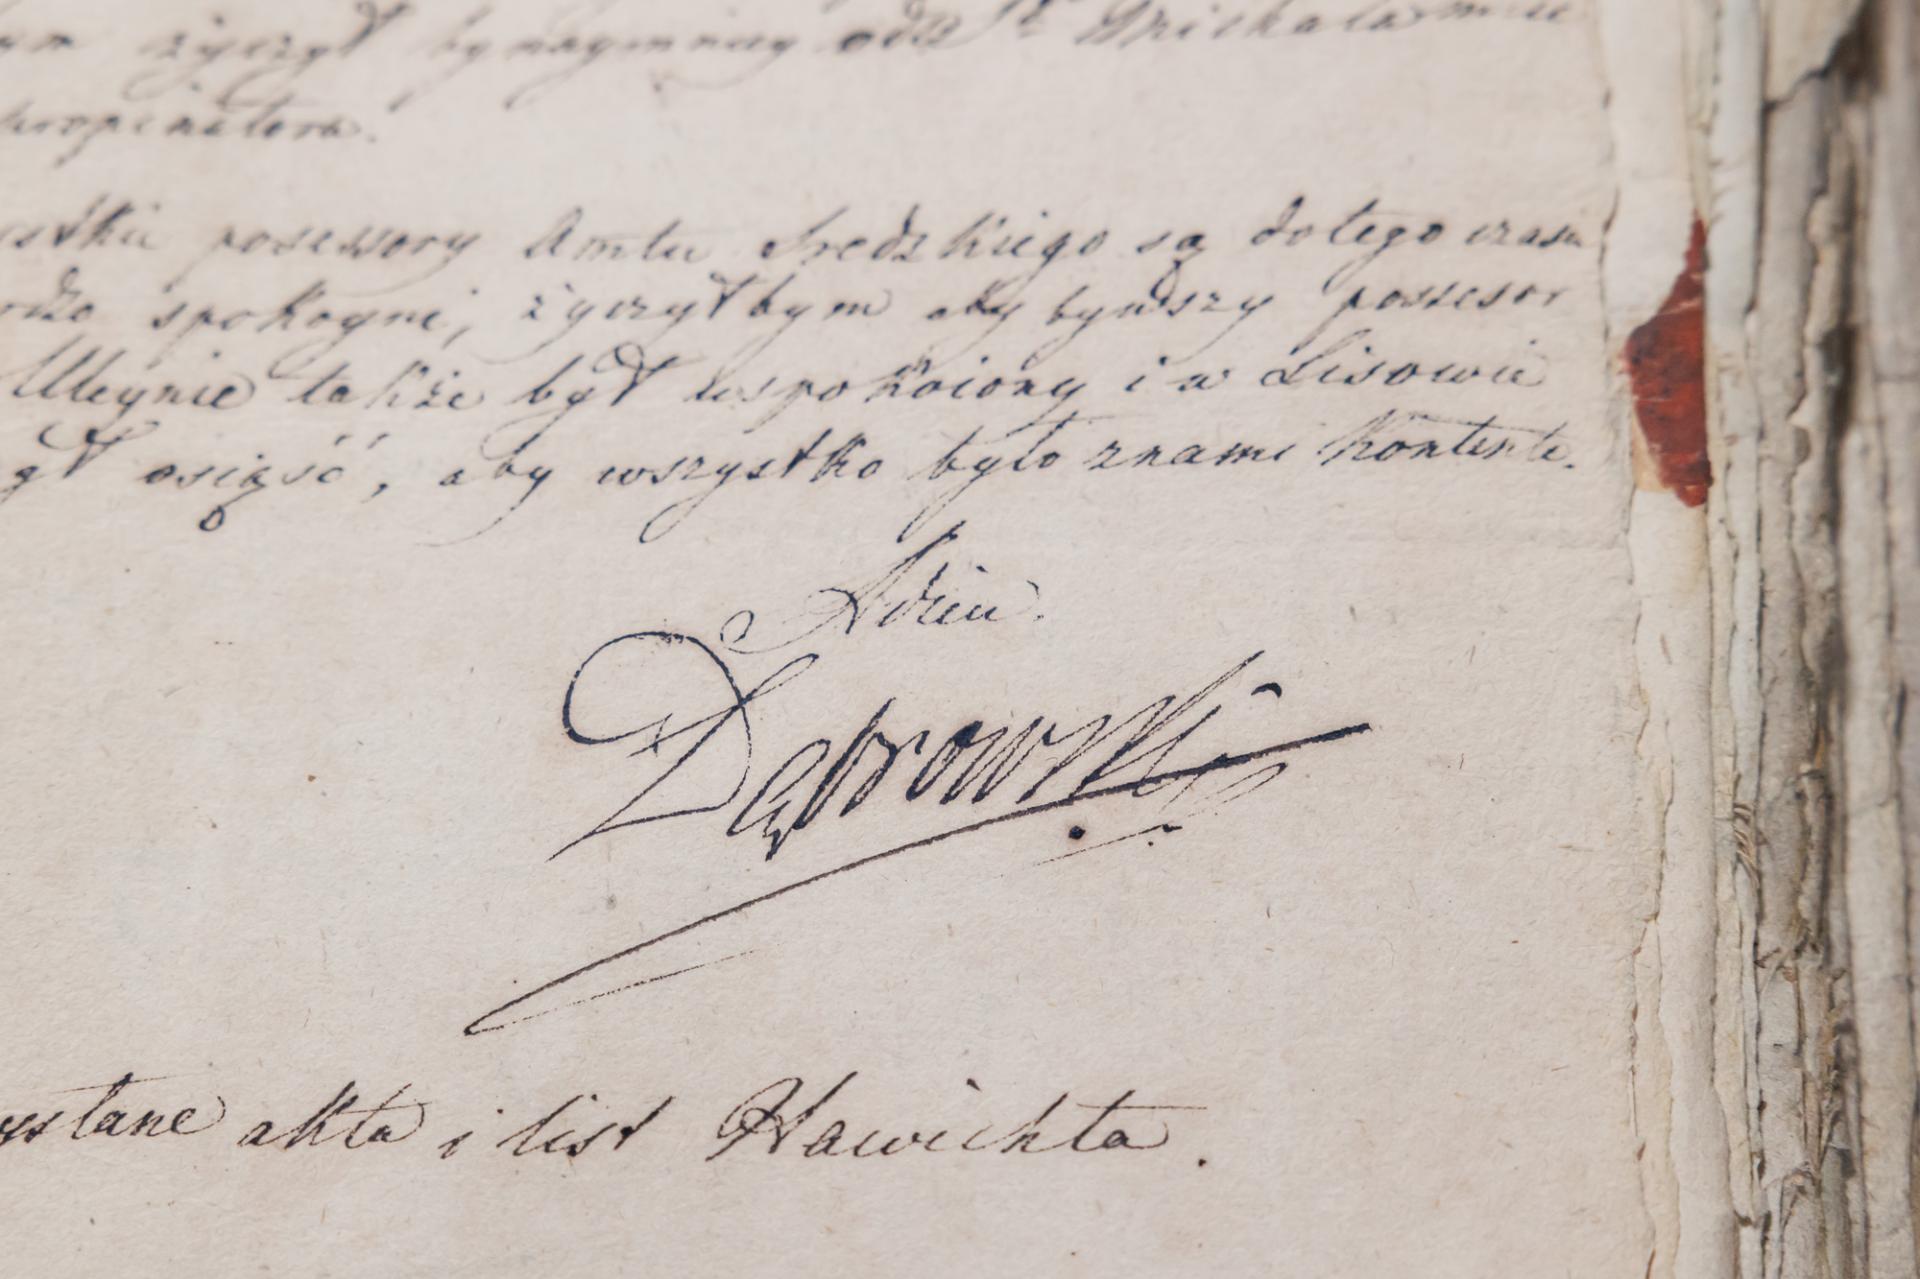 życzył bynaymniey
propinatora.
possessory Amtu Sredzkiego są dotego czasu
spokoyni, życzyłbym aby bywszy possesor
także był uspokoiony i w Lisowie
osiąść, aby wszystko było znami kontente.
Adieu.
Dąbrowski
akta i list Hawichta.